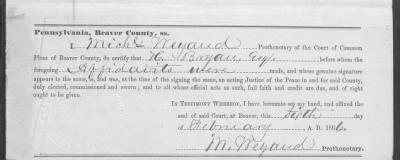 Pennsylvania, Beaver County, ss.
I, Michl Weyand Prothonotary of the Court of Common
Pleas of Beaver County, do certify that Bryan, Esq. before whom the
foregoing Affidavits were made, and whose genuine signature
appears in the same, is, and was, at the time of the signing the same, an acting Justice of the Peace in and for said County,
duly elected, commissioned and sworn; and to all whose official acts as such, full faith and credit are due, and of right
ought to be given.
IN TESTIMONY WHEREOF, I have hereunto set my hand, and affixed the
seal of said Court, at Beaver, this day
of February A. D. 1886.
M. Weyand
Prothonotary.